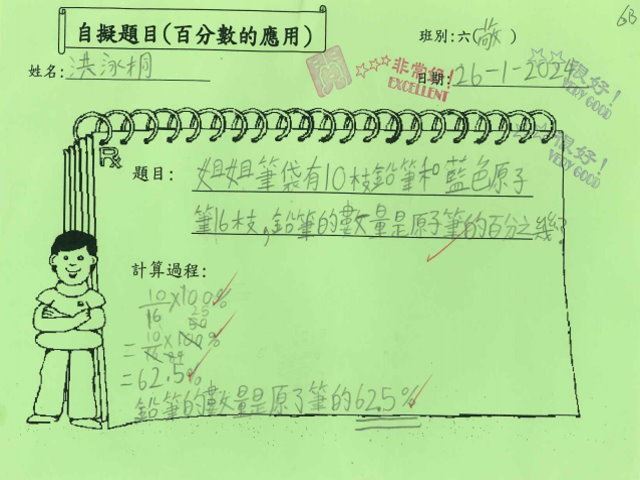 6B
自擬題目(百分數的應用)
班別:六(敬)
姓名:洪泳桐
日期:26-1-2024
非常好!
EXCELLENT
很好!
VERY GOOD
很好!
VERY GOOD
題目: 姐姐筆袋有10枝鉛筆和藍色原子
筆16枝,鉛筆的數量是原子筆的百分之幾?
計算過程:
10/16×100%
25
50
=10/16×100%
84
=62.5%
鉛筆的數量是原子筆的62.5%